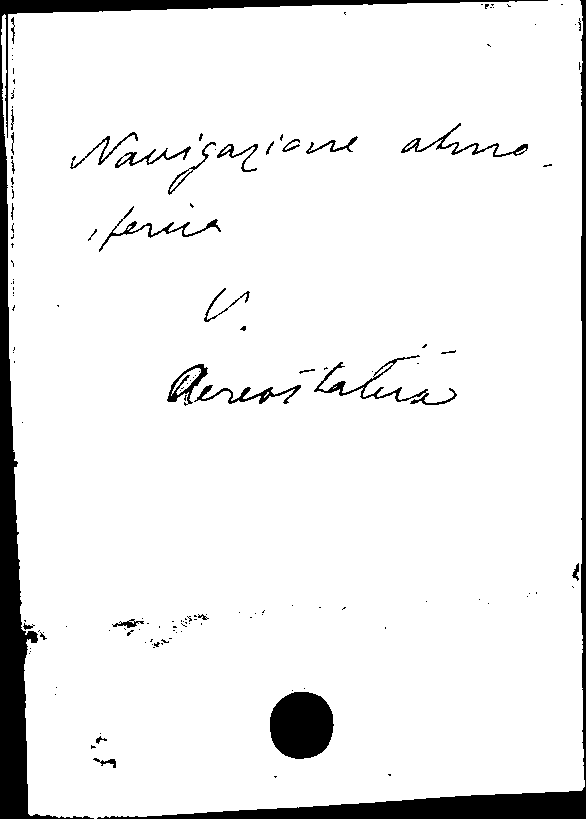 Navigazione atmo-
sferica
V.
Aereostatica